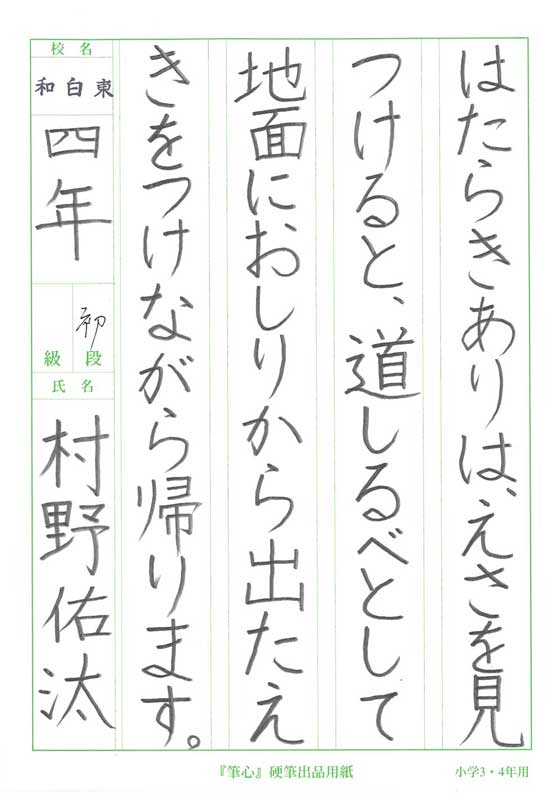 はたらきありは、えさを見
つけると、道しるべとして
地面におしりから出たえ
きをつけながら帰ります。
校名
和白東
四年
初段
級
氏名
村野佑汰
『筆心』硬筆出品用紙
小学3・4年用